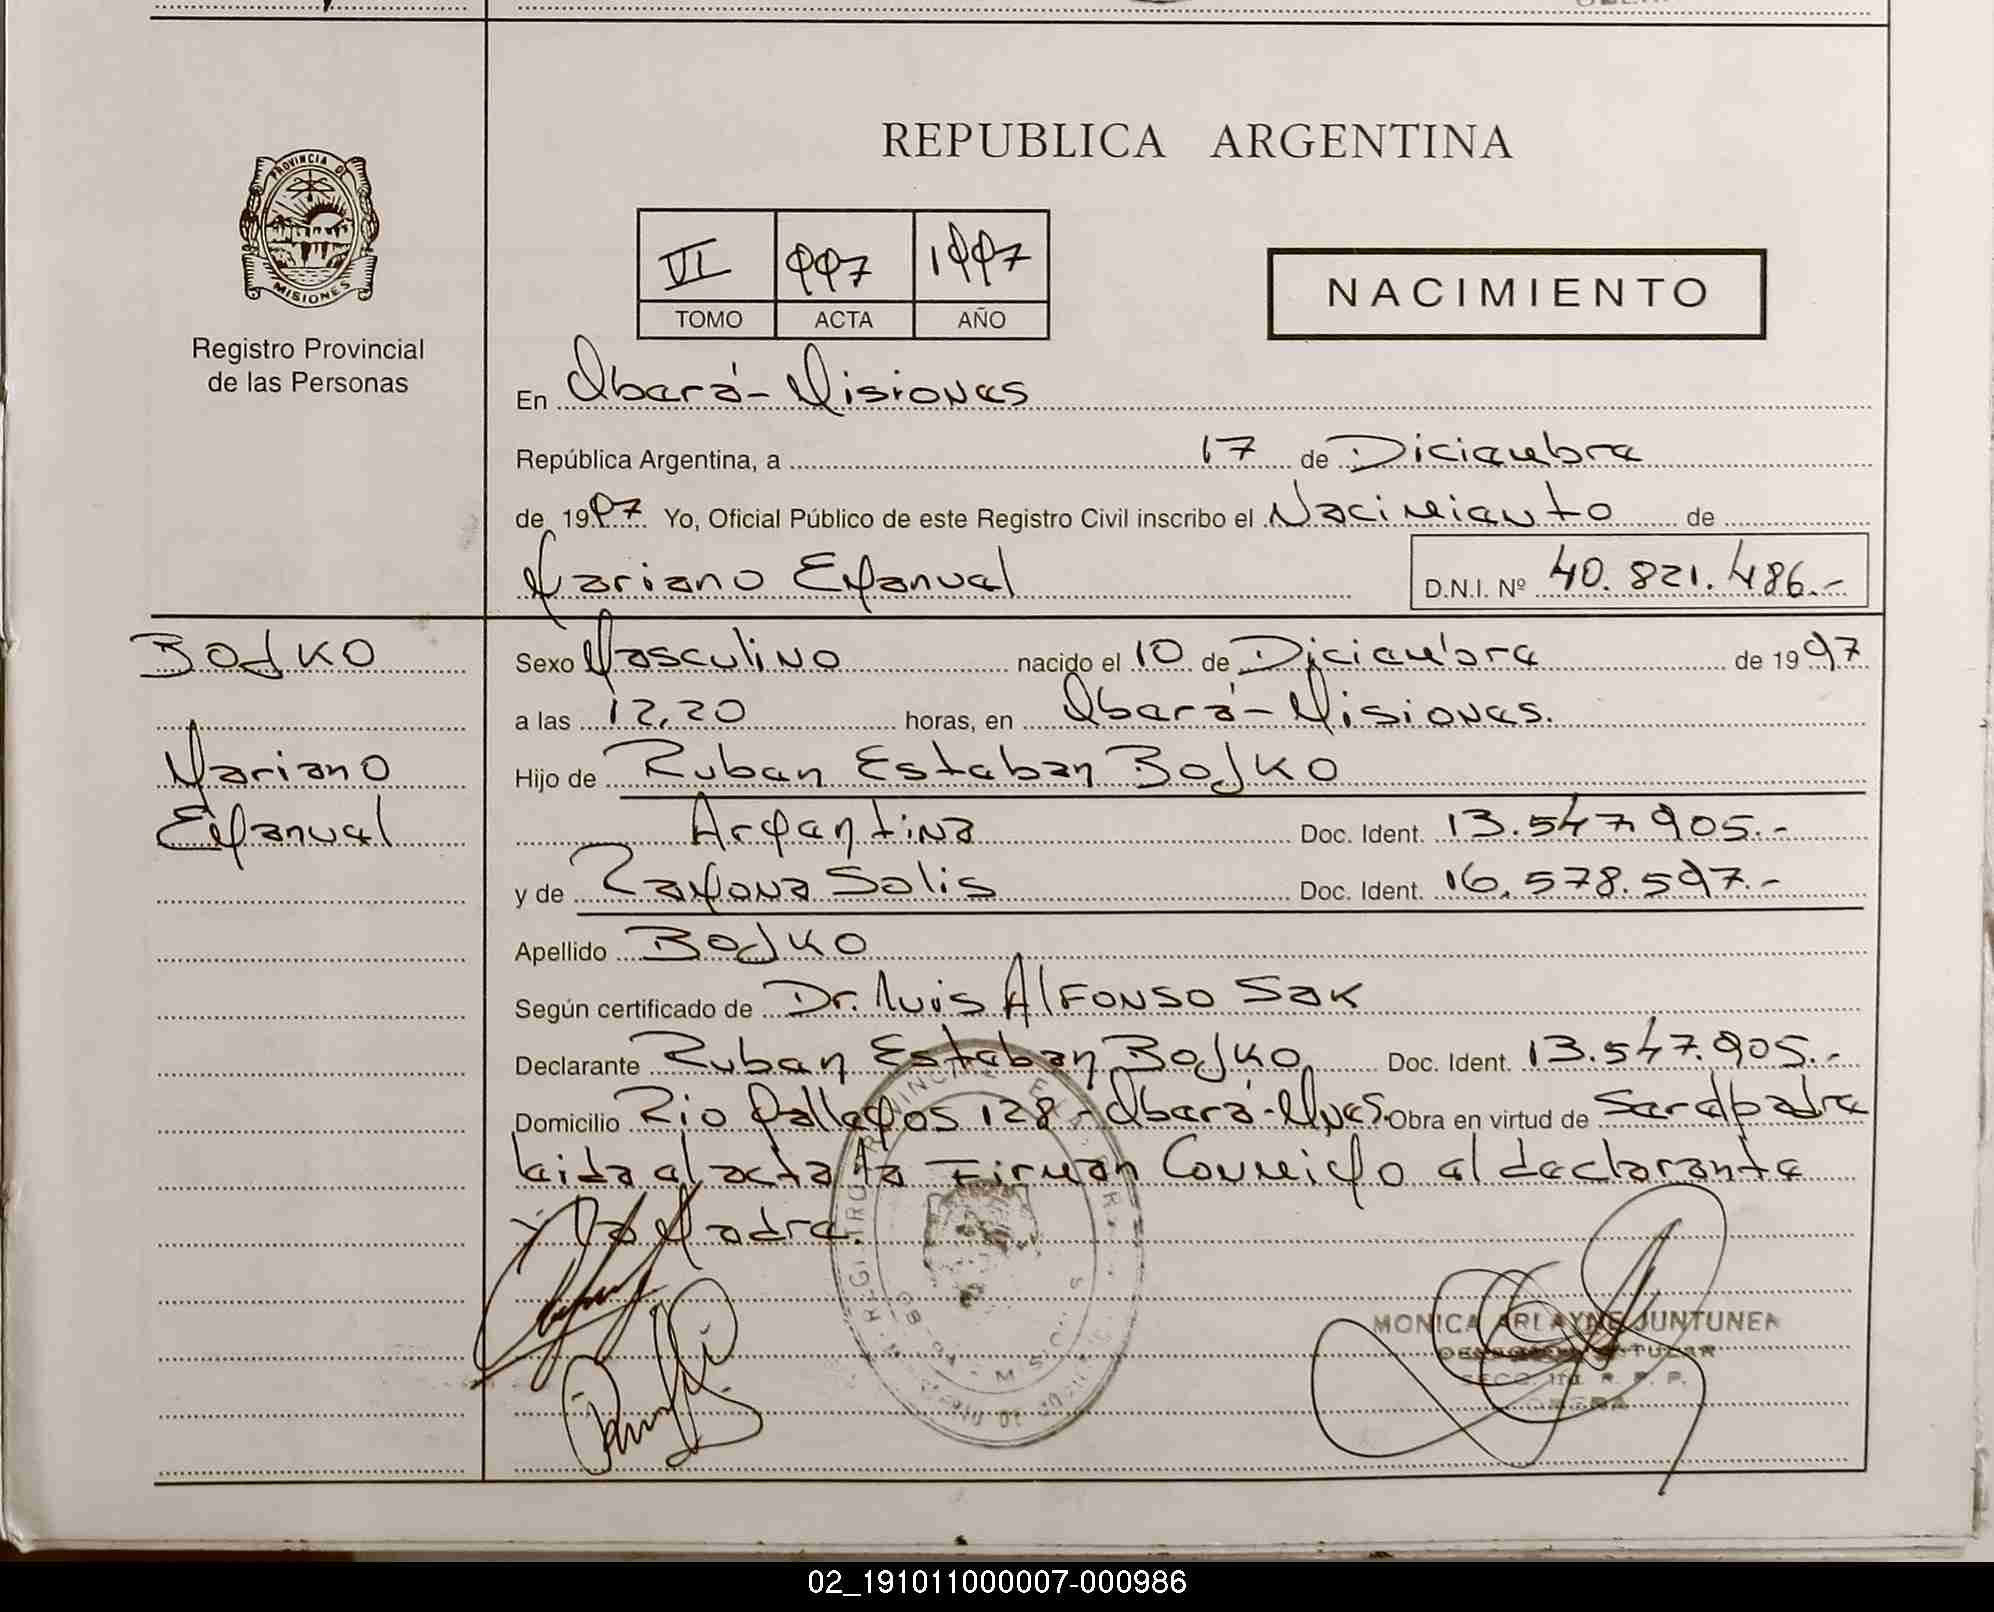 REPUBLICA ARGENTINA
PROVINCIA DE
MISIONES
Registro Provincial
de las Personas
VI 997 1997
TOMO ACTA AÑO
NACIMIENTO
En Oberá - Misiones
República Argentina, a 17 de Diciembre
de 1997 Yo, Oficial Público de este Registro Civil inscribo el Nacimiento de
Mariano Emanuel D.N.I. Nº 40.821.486.-
Bojko
Mariano
Emanuel
Sexo Masculino nacido el 10 de Diciembre de 1997
a las 12,20 horas, en Oberá - Misiones.
Hijo de Ruben Esteban Bojko
Argentina Doc. Ident. 13.547.905.-
y de Ramona Solis Doc. Ident. 16.578.597.-
Apellido Bojko
Según certificado de Dr. Luis Alfonso Sak
Declarante Ruben Esteban Bojko Doc. Ident. 13.547.905.-
Domicilio Rio Gallegos 128 - Oberá - Mnes. Obra en virtud de Ser el padre
Leida el acta la Firman Conmigo el declarante
y la Madre.
MONICA ARLAYNE JUNTUNEN
R. P. P.
OBERA
02_191011000007-000986